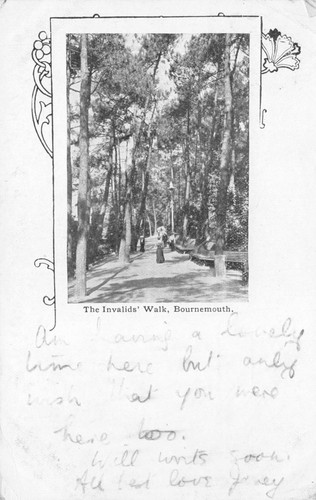 The Invalids' Walk, Bournemouth.
Am having a lovely
time here but only
wish that you were
here too.
Will write soon.
All best love